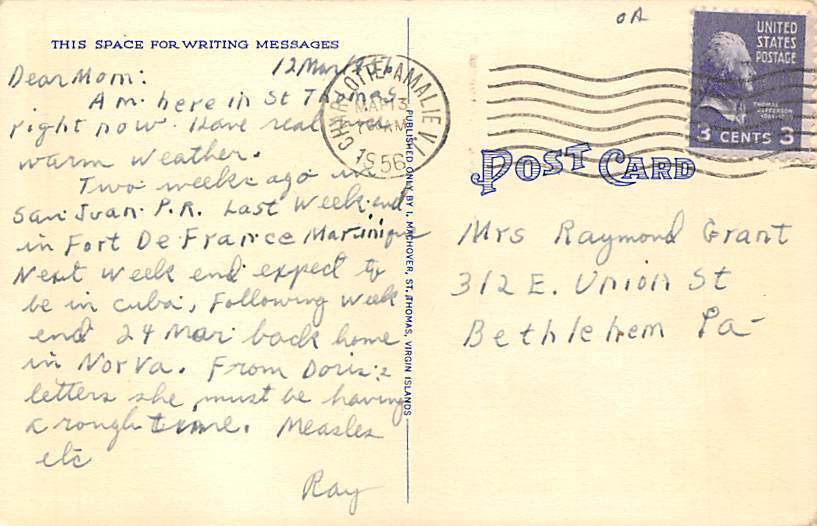 THIS SPACE FOR WRITING MESSAGES
12 Mar 1956
Dear Mom:
Am here in St Thomas
right now. Have real
warm weather.
Two weeks ago in
San Juan P.R. Last weekend
in Fort De France Martinique
Next week end expect to
be in Cuba, Following week
end 24 Mar back home
in Nor Va. From Doris's
letters she must be having
a rough time. Measles
etc
Ray
PUBLISHED ONLY BY I. MACHOVER, ST. THOMAS, VIRGIN ISLANDS
CHARLOTTE AMALIE V.I.
MAR 13
AM
1956
OA
UNITED
STATES
POSTAGE
THOMAS
JEFFERSON
3 CENTS 3
POST CARD
Mrs Raymond Grant
312 E. Union St
Bethlehem Pa-